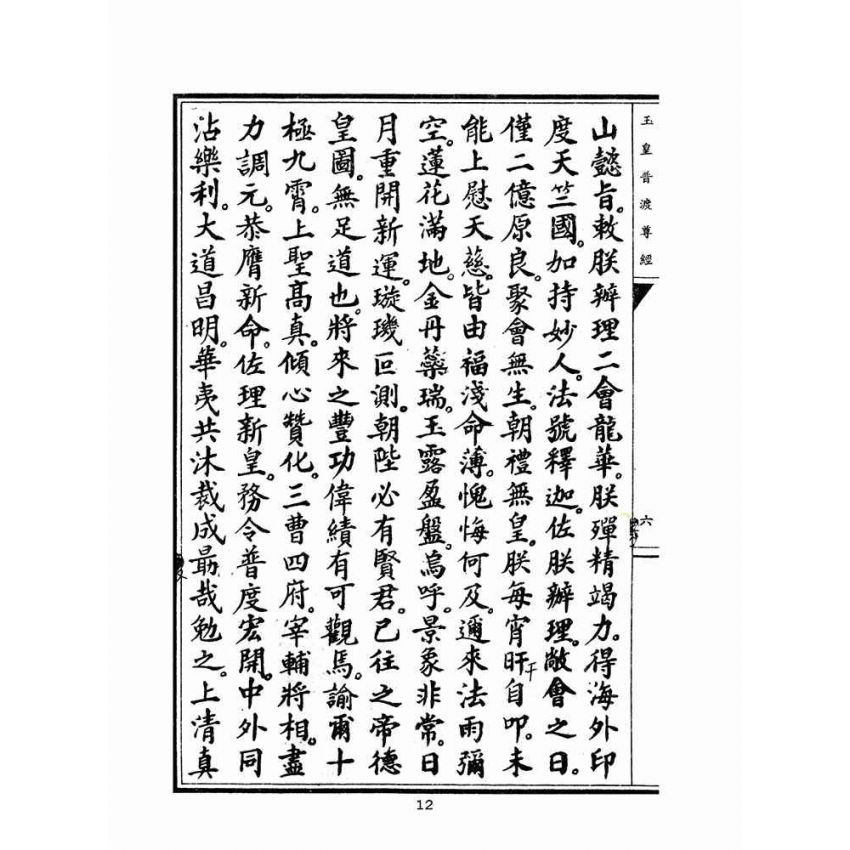 玉皇普渡尊經
六
山懿旨。敕朕辦理二會龍華。朕殫精竭力。得海外印
度天竺國。加持妙人。法號釋迦。佐朕辦理。敞會之日。
僅二億原良。聚會無生。朝禮無皇。朕每宵旰自叩。未
能上慰天慈。皆由福淺命薄。愧悔何及。邇來法雨彌
空。蓮花滿地。金丹藥瑞。玉露盈盤。嗚呼。景象非常。日
月重開新運。璇璣叵測。朝陛必有賢君。已往之帝德
皇圖。無足道也。將來之豐功偉績有可觀焉。諭爾十
極九霄。上聖高真。傾心贊化。三曹四府。宰輔將相。盡
力調元。恭膺新命。佐理新皇。務令普度宏開。中外同
沾樂利。大道昌明。華夷共沐裁成。勗哉勉之。上清真
12